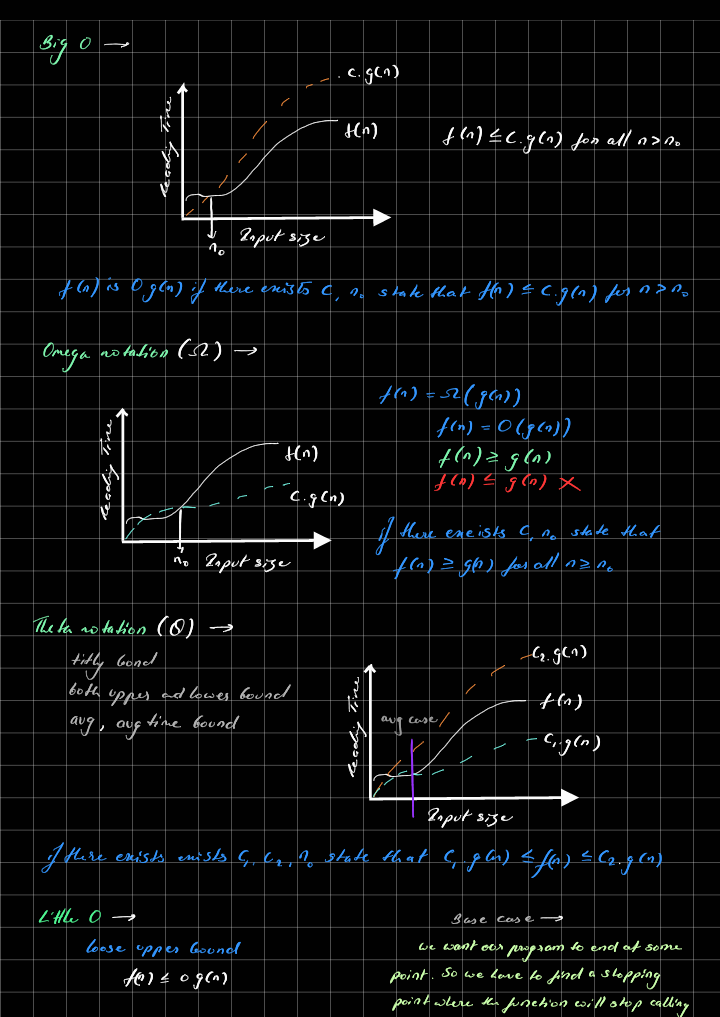 Big O →
c.g(n)
f(n)
f(n) ≤ C.g(n) for all n > n₀
Leading Time
n₀
Input size
f(n) is O g(n) if there exists C, n₀ state that f(n) ≤ C.g(n) for n > n₀
Omega notation (Ω) →
f(n) = Ω(g(n))
f(n) = O(g(n))
f(n) ≥ g(n)
f(n) ≤ g(n) ×
f(n)
C.g(n)
Leading Time
n₀
Input size
if there eneists C, n₀ state that
f(n) ≥ g(n) for all n ≥ n₀
Theta notation (θ) →
titly bond
both upper and lower bound
avg, avg time bound
C₂.g(n)
f(n)
avg case
C₁.g(n)
Leading Time
Input size
if there exists exists C₁, C₂, n₀ state that C₁.g(n) ≤ f(n) ≤ C₂.g(n)
Little O →
loose upper bound
f(n) ≤ o g(n)
Base case →
we want our program to end at some
point. So we have to find a stopping
point where the function will stop calling